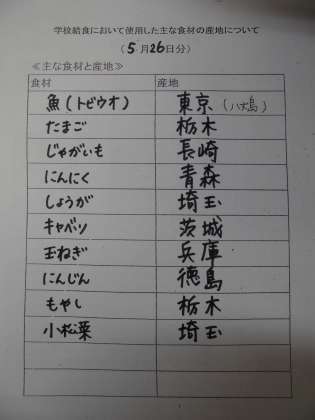 学校給食において使用した主な食材の産地について
(5月26日分)
≪主な食材と産地≫
食材 産地
魚(トビウオ) 東京(八丈島)
たまご 栃木
じゃがいも 長崎
にんにく 青森
しょうが 埼玉
キャベツ 茨城
玉ねぎ 兵庫
にんじん 徳島
もやし 栃木
小松菜 埼玉